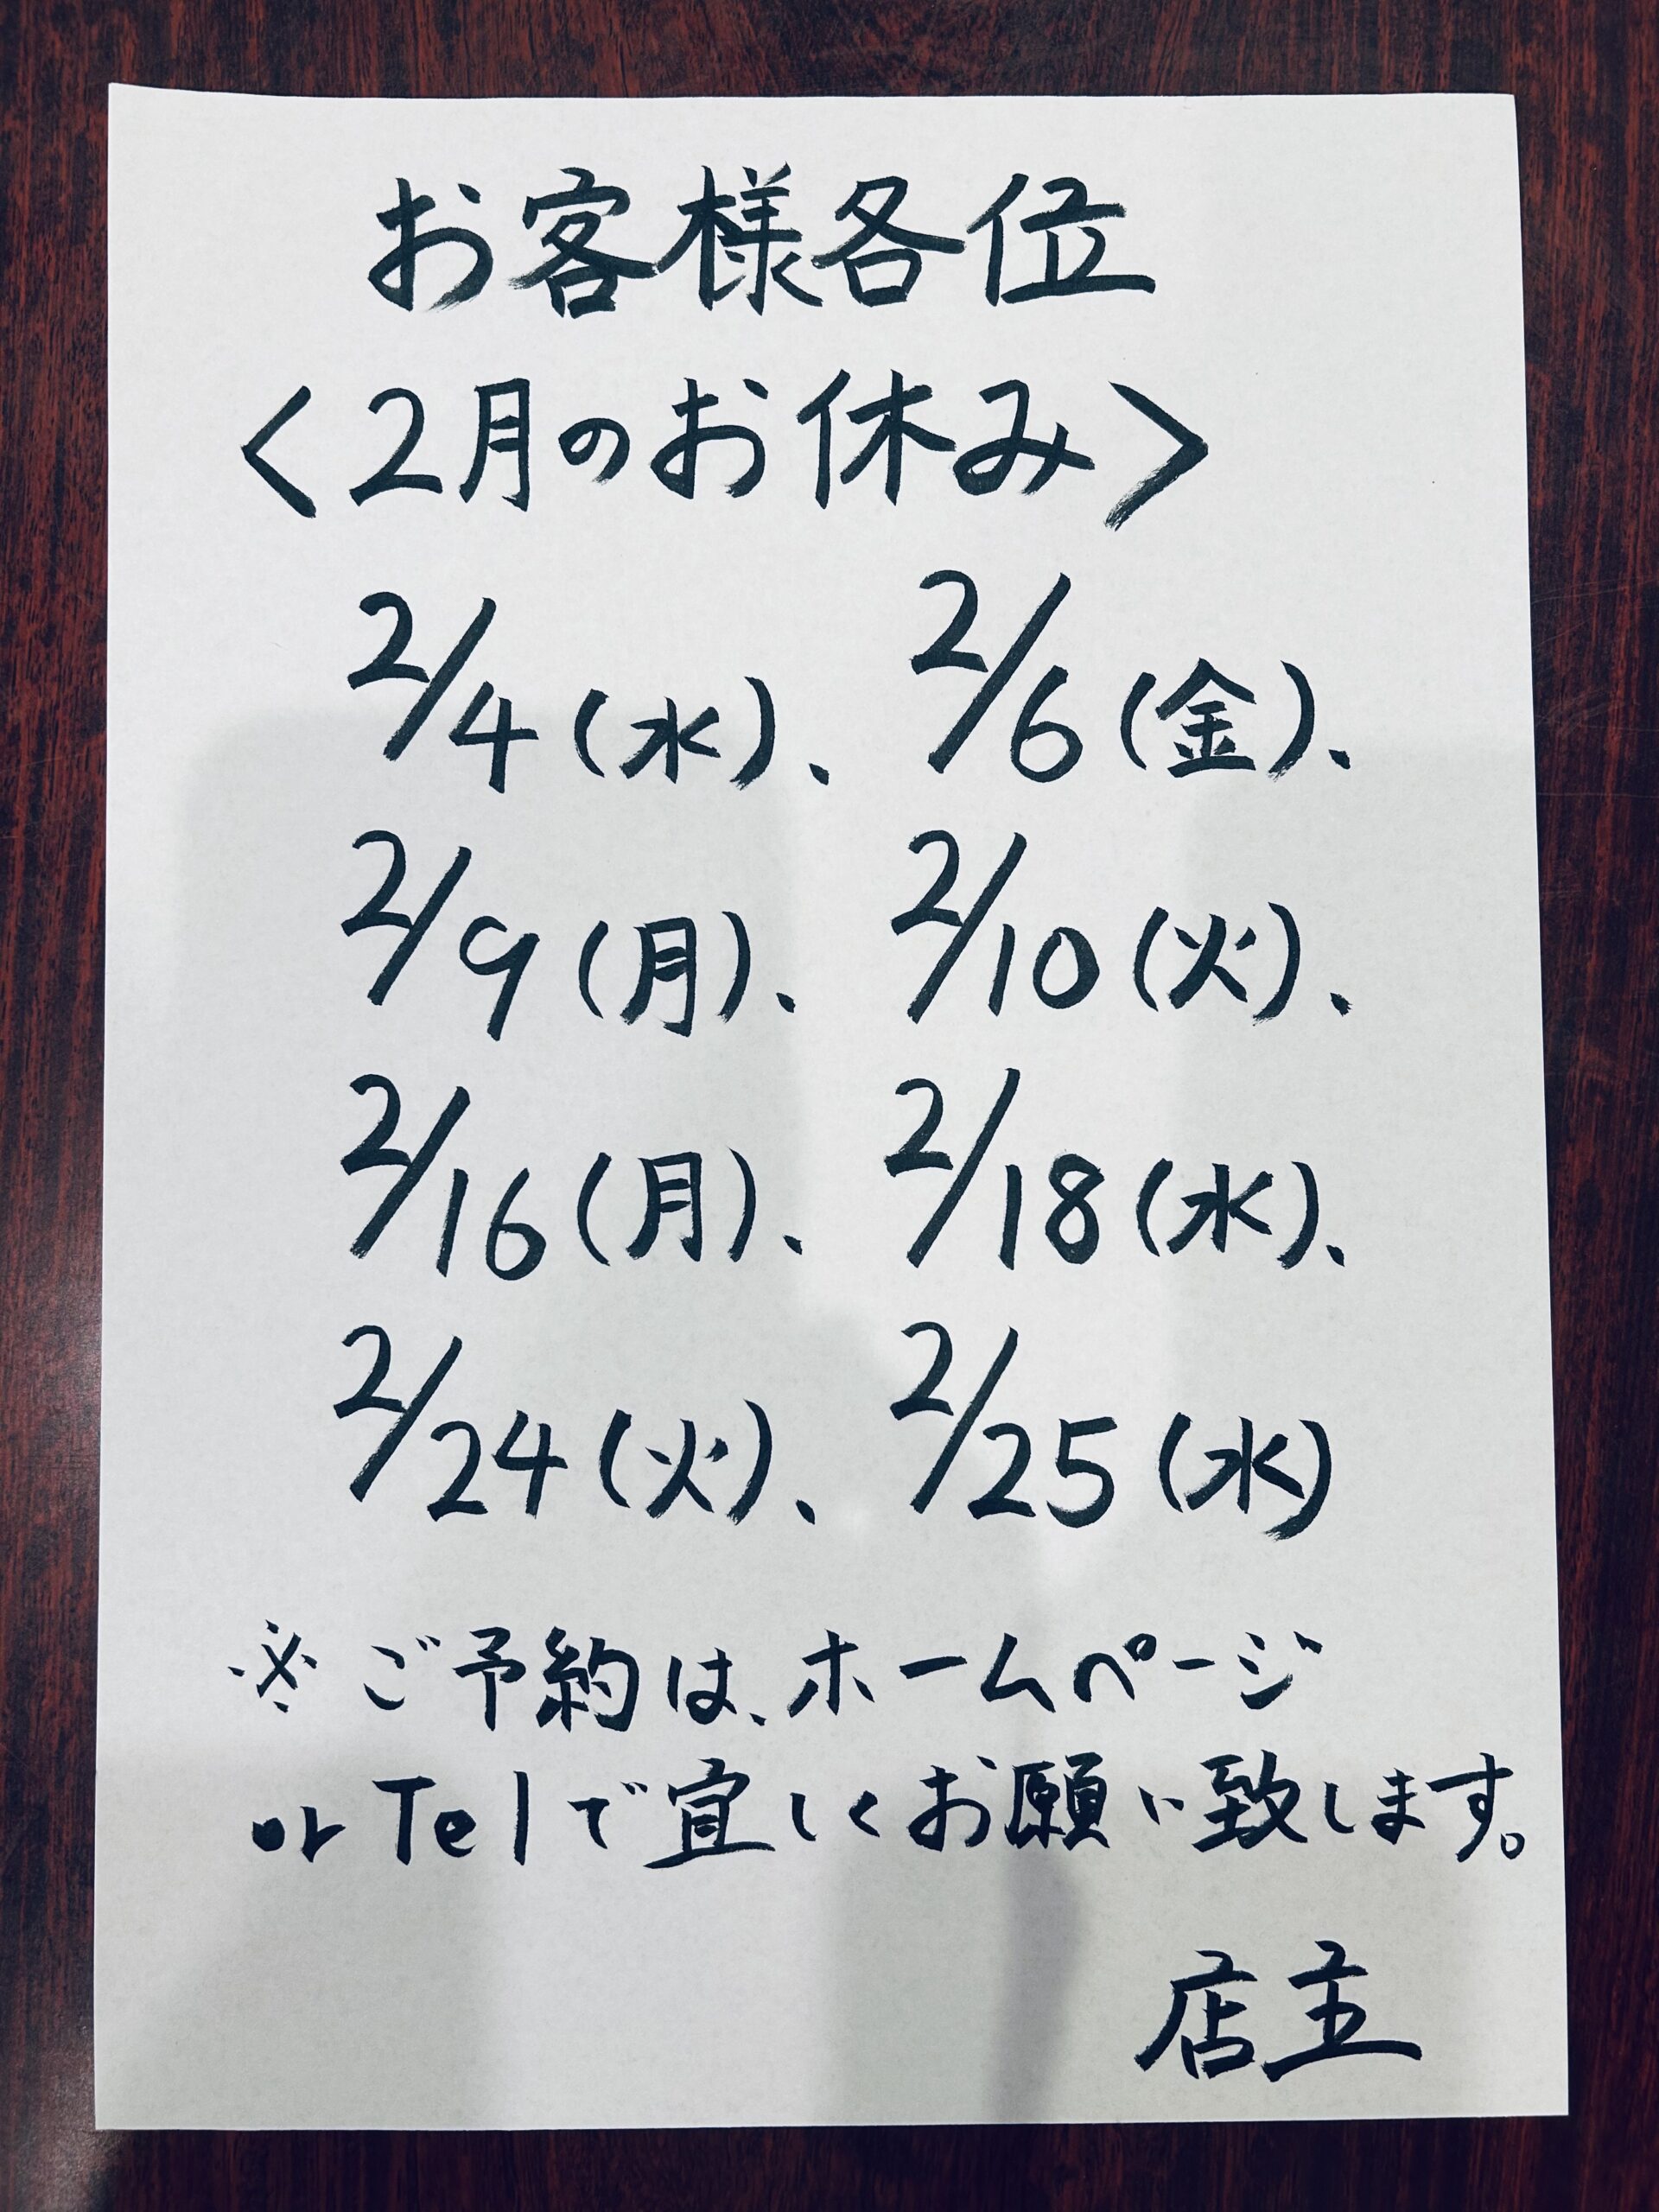 お客様各位
<2月のお休み>
2/4(水)、2/6(金)、
2/9(月)、2/10(火)、
2/16(月)、2/18(水)、
2/24(火)、2/25(水)
※ご予約は、ホームページ
or Telで宜しくお願い致します。
店主